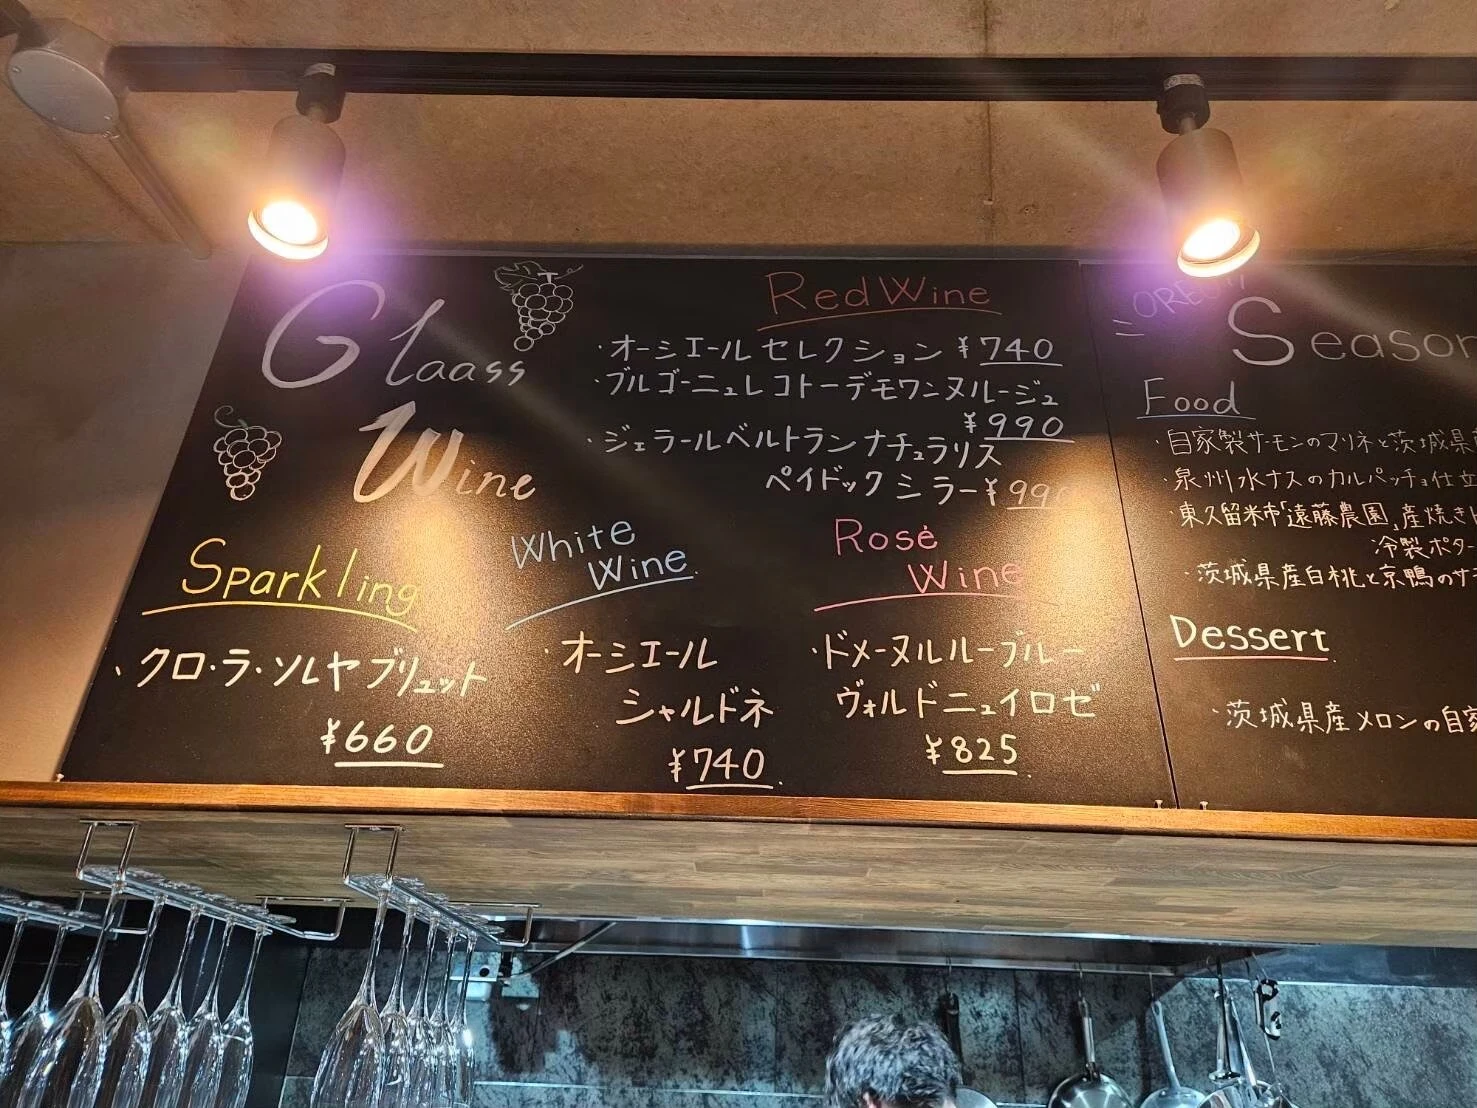 Glaass
Wine
Red Wine
・オーシエールセレクション ¥740
・ブルゴーニュレコトーデモワンヌルージュ
¥990
・ジェラールベルトランナチュラリス
ペイドックシラー ¥990
Sparkling
・クロ・ラ・ソルヤブリュット
¥660
White
Wine
・オーシエール
シャルドネ
¥740
Rosé
Wine
・ドメーヌルルーブルー
ヴォルドニュイロゼ
¥825
Season
Food
・自家製サーモンのマリネと茨城県
・泉州水ナスのカルパッチョ仕立
・東久留米市「遠藤農園」産焼き
冷製ポター
・茨城県産白桃と京鴨のサラ
Dessert
・茨城県産メロンの自家